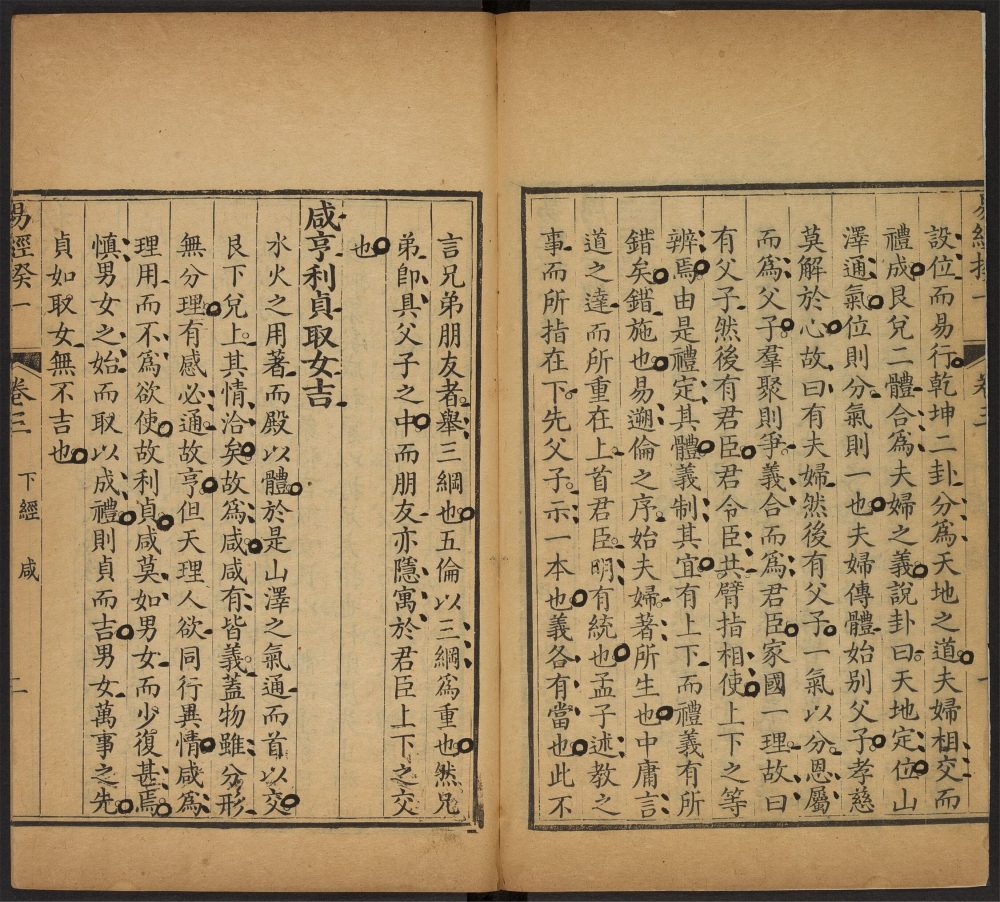 設位而易行乾坤二卦分爲天地之道夫婦相交而
禮成艮兌二體合爲夫婦之義說卦曰天地定位山
澤通氣位則分氣則一也夫婦傳體始别父子孝慈
莫解於心故曰有夫婦然後有父子一氣以分恩屬
而爲父子羣聚則爭義合而爲君臣家國一理故曰
有父子然後有君臣君令臣共臂指相使上下之等
辨焉由是禮定其體義制其宜有上下而禮義有所
錯矣錯施也易遡倫之序始夫婦著所生也中庸言
道之達而所重在上首君臣明有統也孟子述教之
事而所指在下先父子示一本也義各有當也此不
言兄弟朋友者舉三綱也五倫以三綱爲重也然兄
弟卽具父子之中而朋友亦隱寓於君臣上下之交
也
咸亨利貞取女吉
水火之用著而殿以體於是山澤之氣通而首以交
艮下兌上其情洽矣故爲咸咸有皆義蓋物雖分形
無分理有感必通故亨但天理人欲同行異情咸爲
理用而不爲欲使故利貞咸莫如男女而少復甚焉
慎男女之始而取以成禮則貞而吉男女萬事之先
貞如取女無不吉也
易經癸一 卷三 下經 咸 二